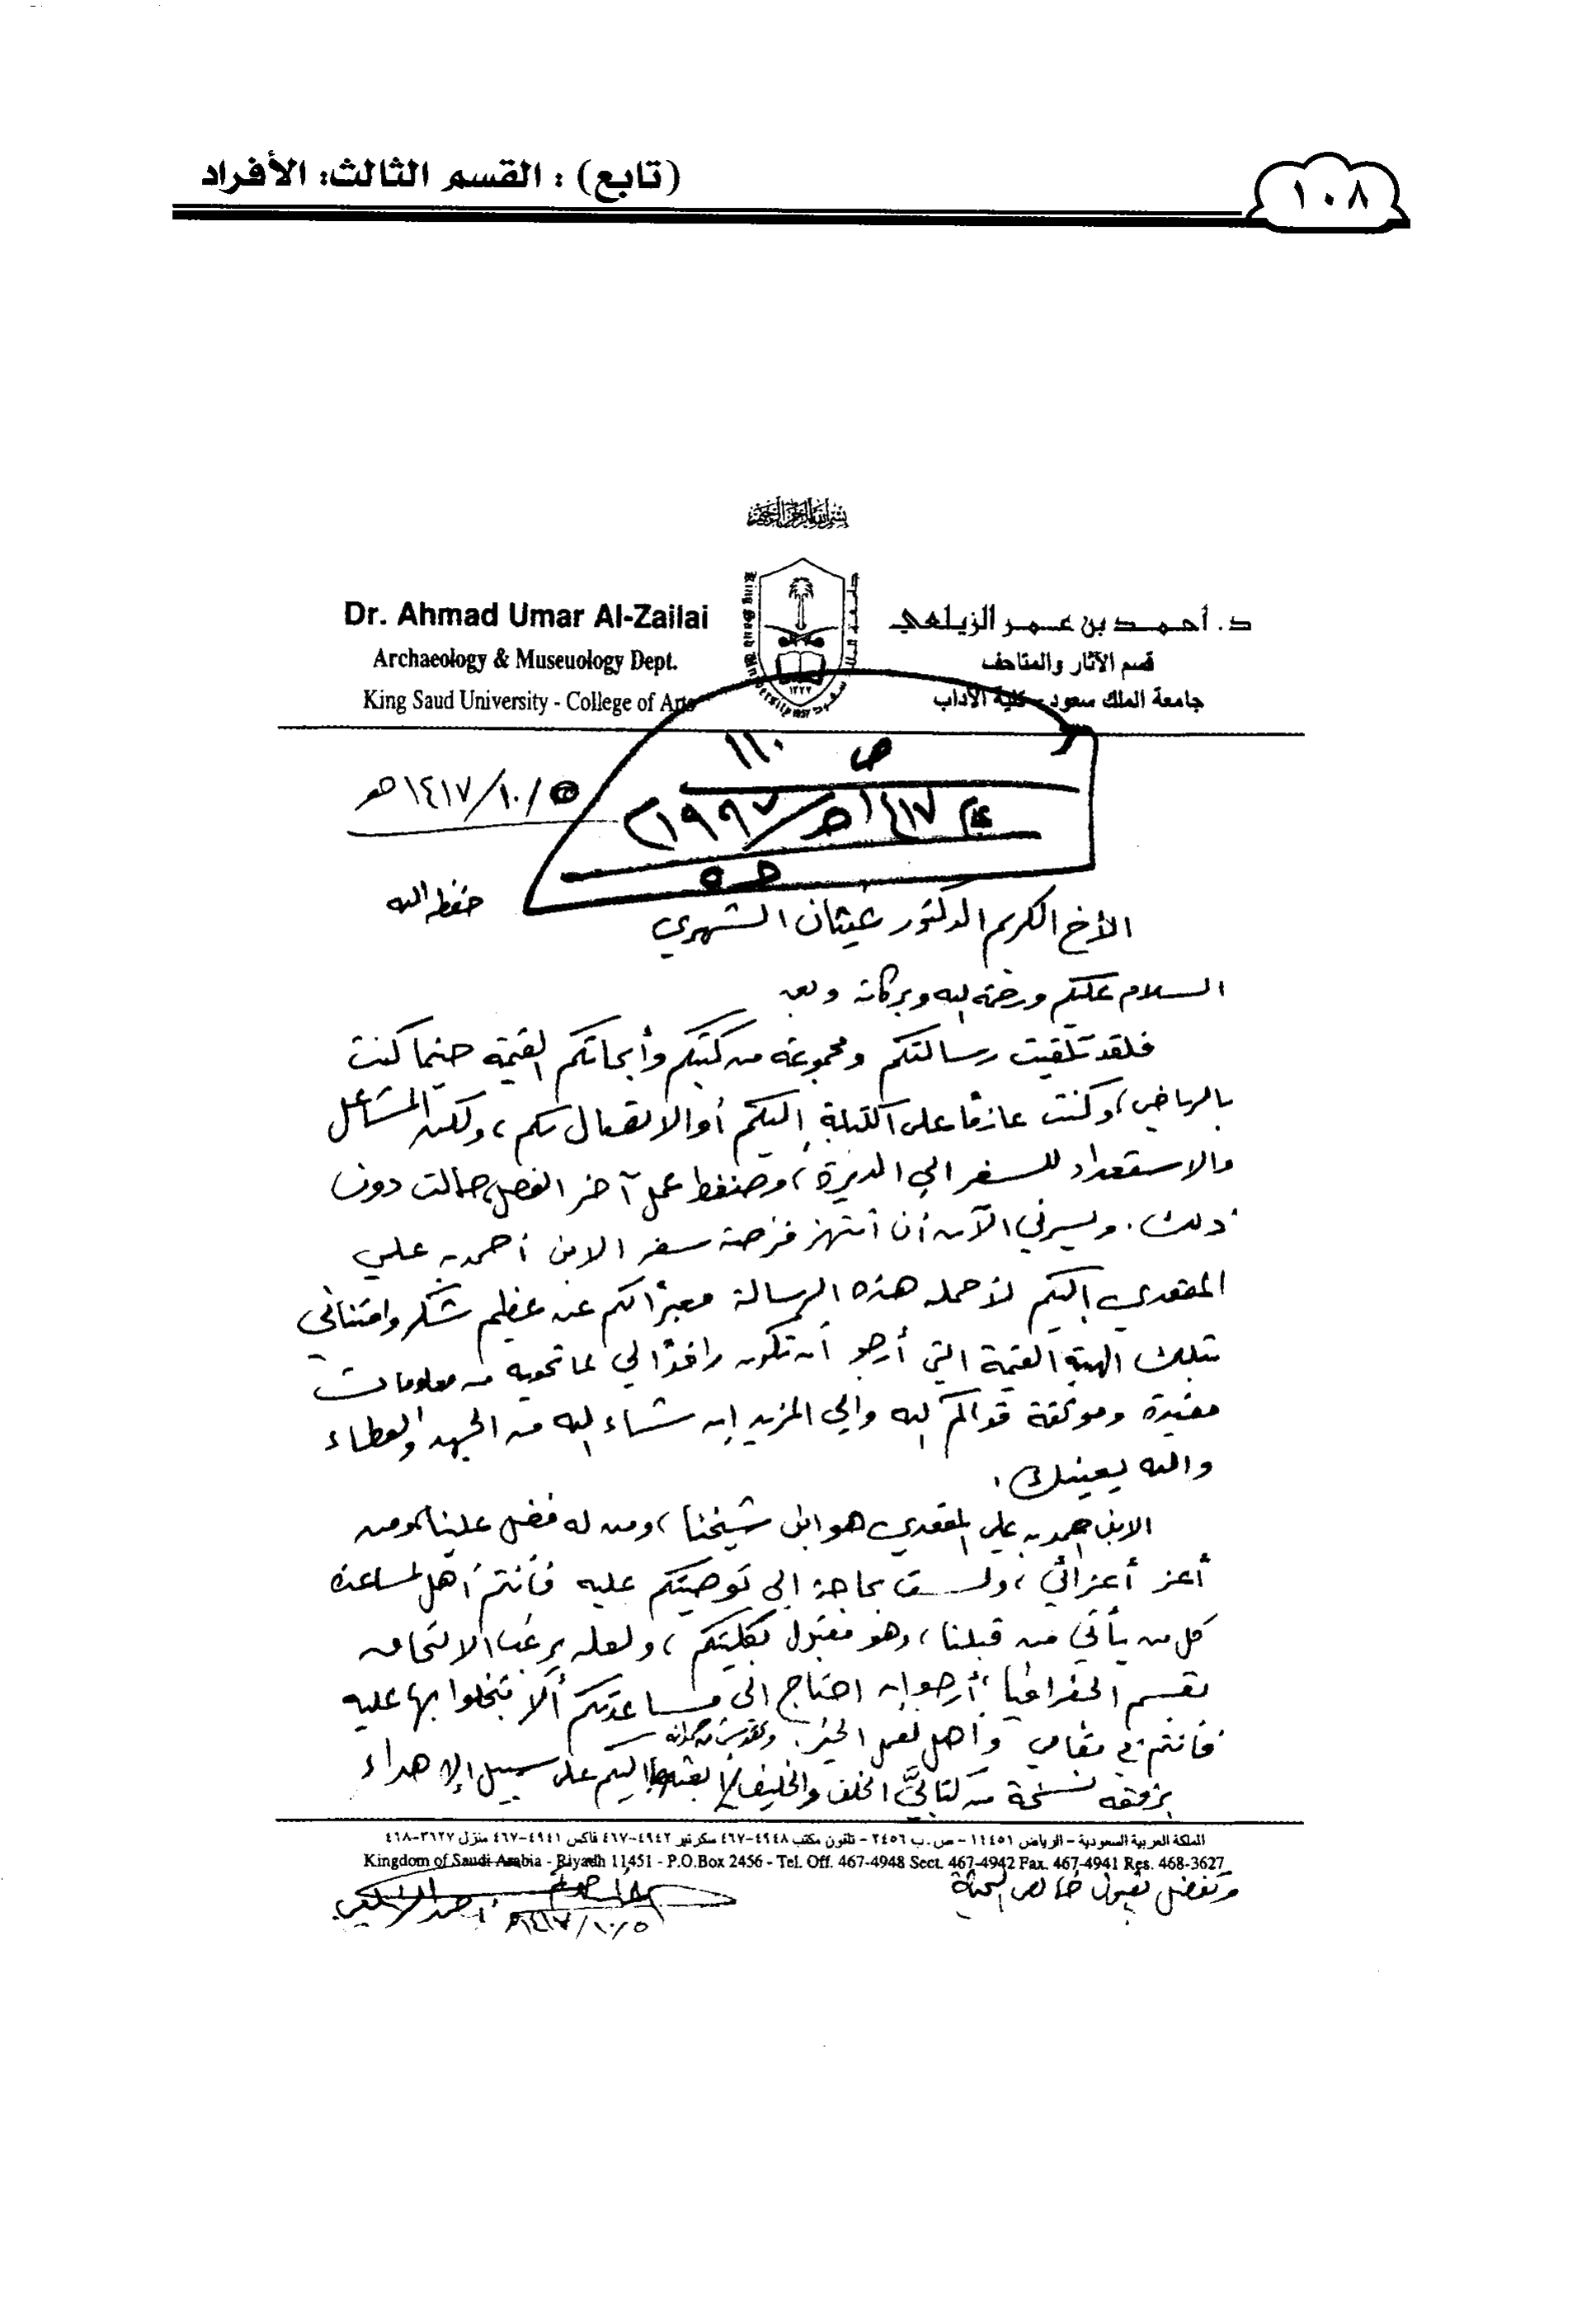 (تابع) : القسم الثالث: الأفراد
١٠٨
بسم الله الرحمن الرحيم
Dr. Ahmad Umar Al-Zailai
Archaeology & Museuology Dept.
King Saud University - College of Arts
King Saud University 1957
١٣٧٧
د. أحمد بن عمر الزيلعي
قسم الآثار والمتاحف
جامعة الملك سعود - كلية الآداب
ص ١١٠
عام ١٤١٧هـ/١٩٩٧م
٥/١٠/١٤١٧هـ
الأخ الكريم الدكتور غيثان الشهري حفظه الله
السلام عليكم ورحمة الله وبركاته وبعد
فلقد تلقيت رسالتكم ومجموعة من كتبكم وأبحاثكم القيمة حينما كنت
بالرياض، وكنت عازمًا على الكتابة إليكم أو الاتصال بكم، ولكن المشاغل
والاستعداد للسفر إلى الديرة، وضغط عمل آخر الفصل حالت دون
ذلك. ويسرني الآن أن أنتهز فرصة سفر الابن أحمد بن علي
المقعدي إليكم لأحمله هذه الرسالة معبرًا لكم عن عظيم شكر وامتناني
بتلك الهدية القيمة التي أرجو أن تكون رافدًا لي لما تحويه من معلومات
مفيدة وموثقة قواكم الله وإلى المزيد إن شاء الله من الجهد والعطاء
والله يعينك.
الابن أحمد بن علي المقعدي هو ابن شيخنا، ومن له فضل علينا، ومن
أعز أعزائي، ولست بحاجة إلى توصيتكم عليه فأنتم أهل لمساعدة
كل من يأتي من قبلنا، وهو مقبول بكليتكم، ولعله يرغب الالتحاق
بقسم الجغرافيا، أرجو إن احتاج إلى مساعدتكم ألا تبخلوا بها عليه
فأنتم في مقامي وأهل لعمل الخير.
برفقه نسخة من كتابيَّ الخلف والخليف إليكم على سبيل الإهداء
المملكة العربية السعودية - الرياض ١١٤٥١ - ص.ب ٢٤٥٦ - تلفون مكتب ٤٩٤٨-٤٦٧ سكرتير ٤٩٤٢-٤٦٧ فاكس ٤٩٤١-٤٦٧ منزل ٣٦٢٧-٤٦٨
Kingdom of Saudi Arabia - Riyadh 11451 - P.O.Box 2456 - Tel. Off. 467-4948 Sect. 467-4942 Fax. 467-4941 Res. 468-3627
وتفضل بقبول خالص التحية
أحمد الزيلعي
٥/١٠/١٤١٧هـ